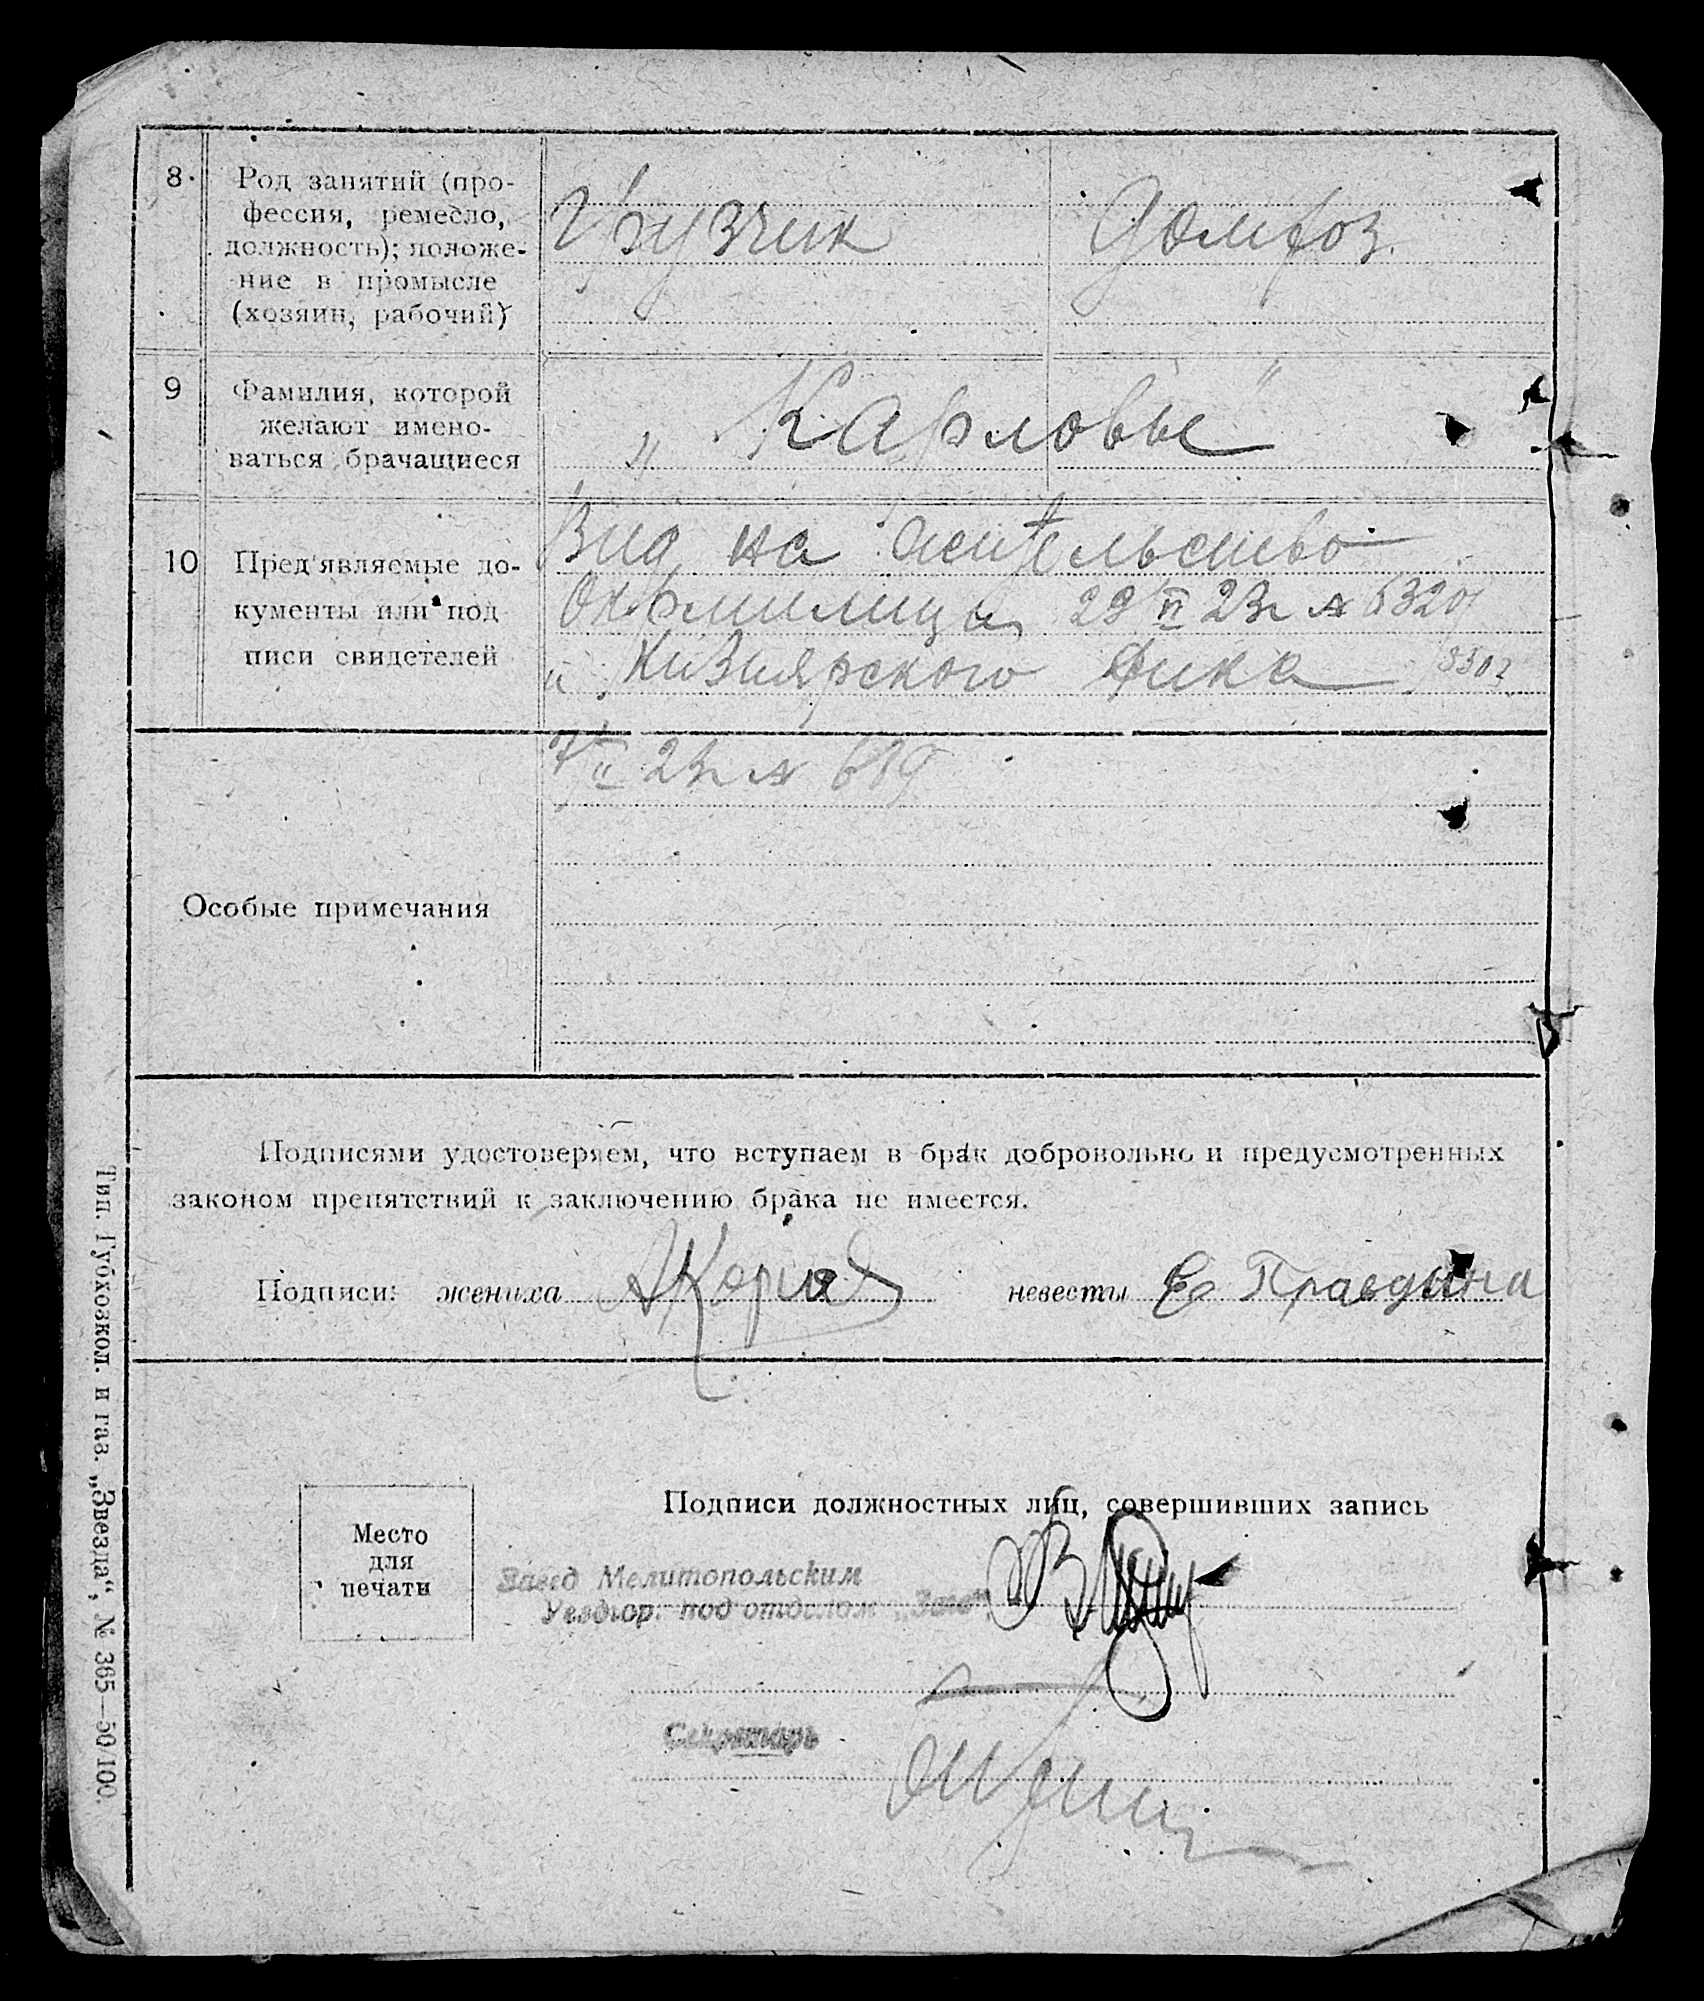 8. Род занятий (про-
фессия, ремесло,
должность); положе-
ние в промысле
(хозяин, рабочий)
Грузчик
Домхоз.
9 Фамилия, которой
желают имено-
ваться брачащиеся
„ Карловы "
10 Пред'являемые до-
кументы или под
писи свидетелей
Вид на жительство
Окрмилиции 29 II 23 г №
Кизиярского
7 II 23 г № 689
Особые примечания
Подписями удостоверяем, что вступаем в брак добровольно и предусмотренных
законом препятствий к заключению брака не имеется.
Подписи: жениха невесты Е Правдина
Место
для
печати
Подписи должностных лиц, совершивших запись
Завед Мелитопольским
Уездгор. под отделом „Загс"
Секретарь
Тип. Губхозкол. и газ. „Звезда“, № 365—50/100.